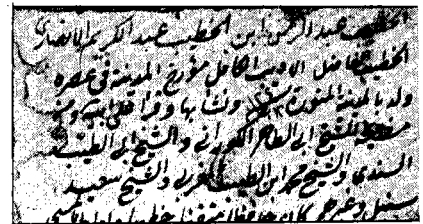 الخطيب عبد الرحمن ابن الخطيب عبد الكريم الانصاري
الخطيب الفاضل الاديب الكامل مؤرخ المدينة في عصره
ولد بالمدينة المنورة ونشا بها وقرا على ابيه و
الشيخ ابي الطاهر الكوراني والشيخ ابي الطيب
السندي والشيخ محمد ابن الطيب المغربي والشيخ سعيد
سنبل وغيرهم وكان